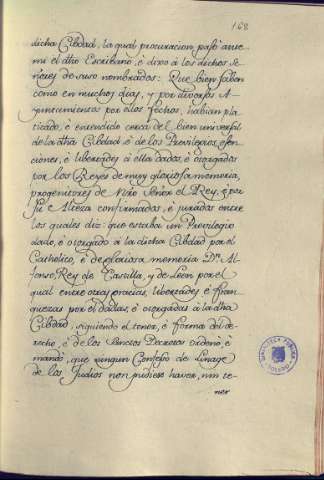 168
dicha Cibdad, la qual procuracion pasó ante
mi el dho Escribano, é dixo á los dichos Se-
ñores de suso nombrados: Que bien saben
como en muchos dias, y por diversos A-
yuntamientos por ellos fechos, habian pla-
ticado, é entendido cerca del bien universal
de la dha Cibdad é de los Previlegios, esen-
ciones, é libertades á ella dados, é otorgados
por los Reyes de muy gloriosa memoria,
progenitores de Nro Señor el Rey, é por
su Alteza confirmados, é jurados entre
los quales diz que estaba un Previlegio
dado, é otorgado á la dicha Cibdad por el
Catholico, é de gloriosa memoria Dn. Al-
fonso, Rey de Castilla, y de Leon por el
qual entre otras gracias, libertades é fran-
quezas por el dadas, é otorgadas á la dha
Cibdad, siguiendo el tenor, é forma del de-
recho, é de los Sanctos Decretos ordenó, é
mandó, que ningun Confeso de Linage
de los Judios non pudiese haver, nin te-
ner
BIBLIOTECA PUBLICA
TOLEDO